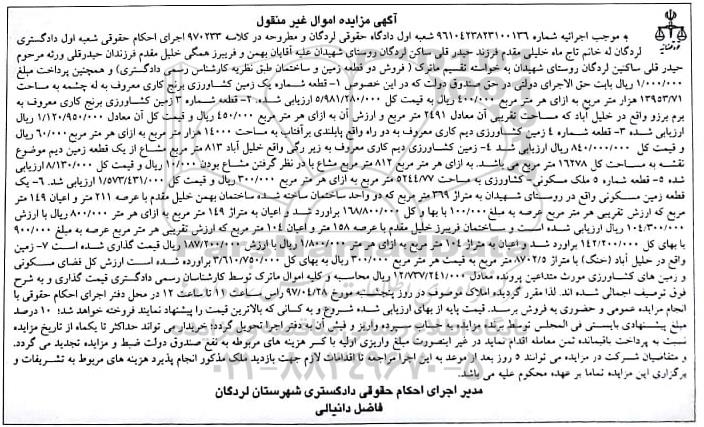 آگهی مزایده اموال غیر منقول
به موجب اجرائیه شماره ۹۶۱۰۴۲۳۸۲۳۱۰۰۱۳۶ شعبه اول دادگاه حقوقی لردگان و مطروحه در کلاسه ۹۷۰۲۳۳ اجرای احکام حقوقی شعبه اول دادگستری
لردگان له خانم تاج ماه خلیلی مقدم فرزند حیدر قلی ساکن لردگان روستای شهیدان علیه آقایان بهمن و فریبرز همگی خلیل مقدم فرزندان حیدرقلی ورثه مرحوم
حیدر قلی ساکنین لردگان روستای شهیدان به خواسته تقسیم ماترک ( فروش دو قطعه زمین و ساختمان طبق نظریه کارشناس رسمی دادگستری) و همچنین پرداخت مبلغ
۱/۰۰۰/۰۰۰ ریال بابت حق الاجرای دولتی در حق صندوق دولت که در این خصوص ۱- قطعه شماره یک زمین کشاورزی برنج کاری معروف به له چشمه به مساحت
۱۳۹۵۳/۷۱ هزار متر مربع به ازای هر متر مربع ۴۰۰/۰۰۰ ریال به قیمت کل ۵/۹۸۱/۲۸۰/۰۰۰ ریال ارزیابی شده. ۲- قطعه شماره ۳ زمین کشاورزی برنج کاری معروف به
برم برزو واقع در خلیل آباد که مساحت تقریبی آن معادل ۲۴۹۱ متر مربع و ارزش آن به ازای هر متر مربع ۴۵۰/۰۰۰ ریال و قیمت کل آن معادل ۱/۱۲۰/۹۵۰/۰۰۰ ریال
ارزیابی شده ۳- قطعه شماره ۴ زمین کشاورزی دیم کاری معروف به دو راه واقع پایلندی برآفتاب به مساحت ۱۴۰۰۰ هزار متر مربع به ازای هر متر مربع ۶۰/۰۰۰ ریال
و قیمت کل ۸۴۰/۰۰۰/۰۰۰ ریال ارزیابی شد ۴- زمین کشاورزی دیم کاری معروف به زیر رگی واقع خلیل آباد ۸۱۳ متر مربع مشاع از یک قطعه زمین دیم موضوع
نقشه به مساحت کل ۱۶۲۷۸ متر مربع می باشد. به ازای هر متر مربع ۸۱۲ متر مربع مشاع با در نظر گرفتن مشاع بودن ۱۰/۰۰۰ ریال و قیمت کل ۸/۱۳۰/۰۰۰ ارزیابی
شده ۵- قطعه شماره ۵ ملک مسکونی- کشاورزی به مساحت ۵۲۴۴/۷۷ متر مربع به ازای هر متر مربع ۳۰۰/۰۰۰ ریال و قیمت کل ۱/۵۷۳/۴۳۱/۰۰۰ ارزیابی شد. ۶- یک
قطعه زمین مسکونی واقع در روستای شهیدان به متراژ ۳۶۹ متر مربع که دو واحد ساختمان ساخته شده ساختمان بهمن خلیل مقدم با عرصه ۲۱۱ متر و اعیان ۱۴۹ متر
مربع که ارزش تقریبی هر متر مربع عرصه به مبلغ ۱۰۰/۰۰۰ با بها و کل ۱۶۸/۸۰۰/۰۰۰ برآورد شد و اعیان به متراژ ۱۴۹ متر مربع به ازای هر متر ۸۰۰/۰۰۰ ریال با ارزش
۱۰۴/۳۰۰/۰۰۰ ریال ارزیابی شده است و ساختمان فریبرز خلیل مقدم با عرصه ۱۵۸ متر و اعیان ۱۰۴ متر مربع که ارزش تقریبی هر متر مربع عرصه به مبلغ ۹۰۰/۰۰۰
با بهای کل ۱۴۲/۲۰۰/۰۰۰ برآورد شد و اعیان به متراژ ۱۰۴ متر مربع به ازای هر متر ۱/۸۰۰/۰۰۰ ریال با ارزش ۱۸۷/۲۰۰/۰۰۰ ریال قیمت گذاری شده است ۷- زمین
واقع در خلیل آباد (حنگ) با متراژ ۱۸۷۰۲/۵ متر مربع به قیمت هر متر مربع ۳۰۰/۰۰۰ ریال به بهای کل ۳/۶۱۰/۷۵۰/۰۰۰ برآورده شده است ارزش کل فضای مسکونی
و زمین های کشاورزی مورث متداعیین پرونده معادل ۱۲/۷۳۷/۲۴۱/۰۰۰ ریال محاسبه و کلیه اموال ماترک توسط کارشناسان رسمی دادگستری قیمت گذاری و به شرح
فوق توصیف اجمالی شده اند. لذا مقرر گردیده املاک موصوف در روز پنجشنبه مورخ ۹۷/۰۴/۲۸ راس ساعت ۱۱ تا ساعت ۱۲ در محل دفتر اجرای احکام حقوقی با
انجام مزایده عمومی و حضوری به فروش برسد. قیمت پایه از بهای ارزیابی شده شروع و به کانی که بالاترین قیمت را پیشنهاد نمایند فروخته خواهد شد؛ ۱۰ درصد
مبلغ پیشنهادی بایستی فی المجلس توسط برنده مزایده به حساب سپرده واریز و فیش آن به دفتر اجرا تحویل گردد؛ خریدار می تواند حداکثر تا یکماه از تاریخ مزایده
نسبت به پرداخت باقیمانده ثمن معامله اقدام نماید در غیر اینصورت مبلغ واریزی اولیه با کسر هزینه های مربوطه به نفع صندوق دولت ضبط و مزایده تجدید می گردد.
و متقاضیان شرکت در مزایده می توانند ۵ روز بعد از موعد به این اجرا مراجعه تا اقدامات لازم جهت بازدید ملک مذکور انجام پذیرد هزینه های مربوط به تشریفات و
برگزاری این مزایده تماما بر عهده محکوم علیه می باشد.
مدیر اجرای احکام حقوقی دادگستری شهرستان لردگان
فاضل دانیالی
۰۲۱-۸۸۳۴۹۶۷۰-۵